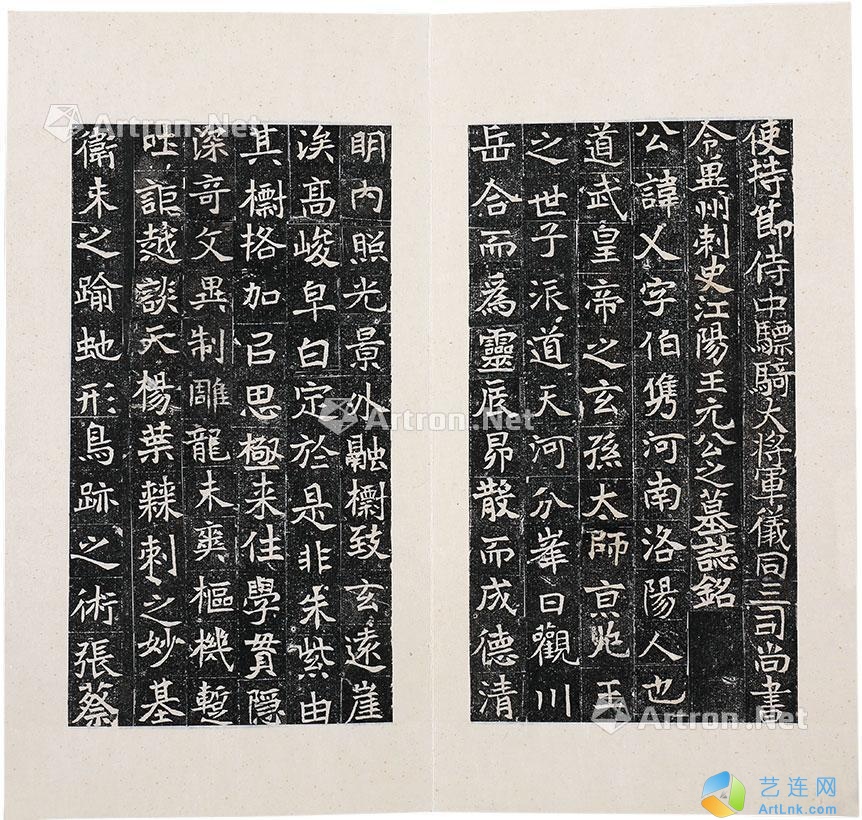 使持節侍中驃騎大將軍儀同三司尚書
令冀州刺史江陽王元公之墓誌銘
公諱乂字伯儁河南洛陽人也
道武皇帝之玄孫太師京兆王
之世子派道天河分峯日觀川
岳合而為靈辰昴散而成德清
明內照光景外融檦致玄遠崖
涘高峻皁白定於是非朱紫由
其檦格加以思極來住學貫隱
深奇文異制雕龍未爽樞機
談天楊葉棘刺之妙基
衞未之踰虵形鳥跡之術張蔡
Artron.Net
Artron.Net
Artron.Net
Artron.Net
艺连网
ArtLnk.com